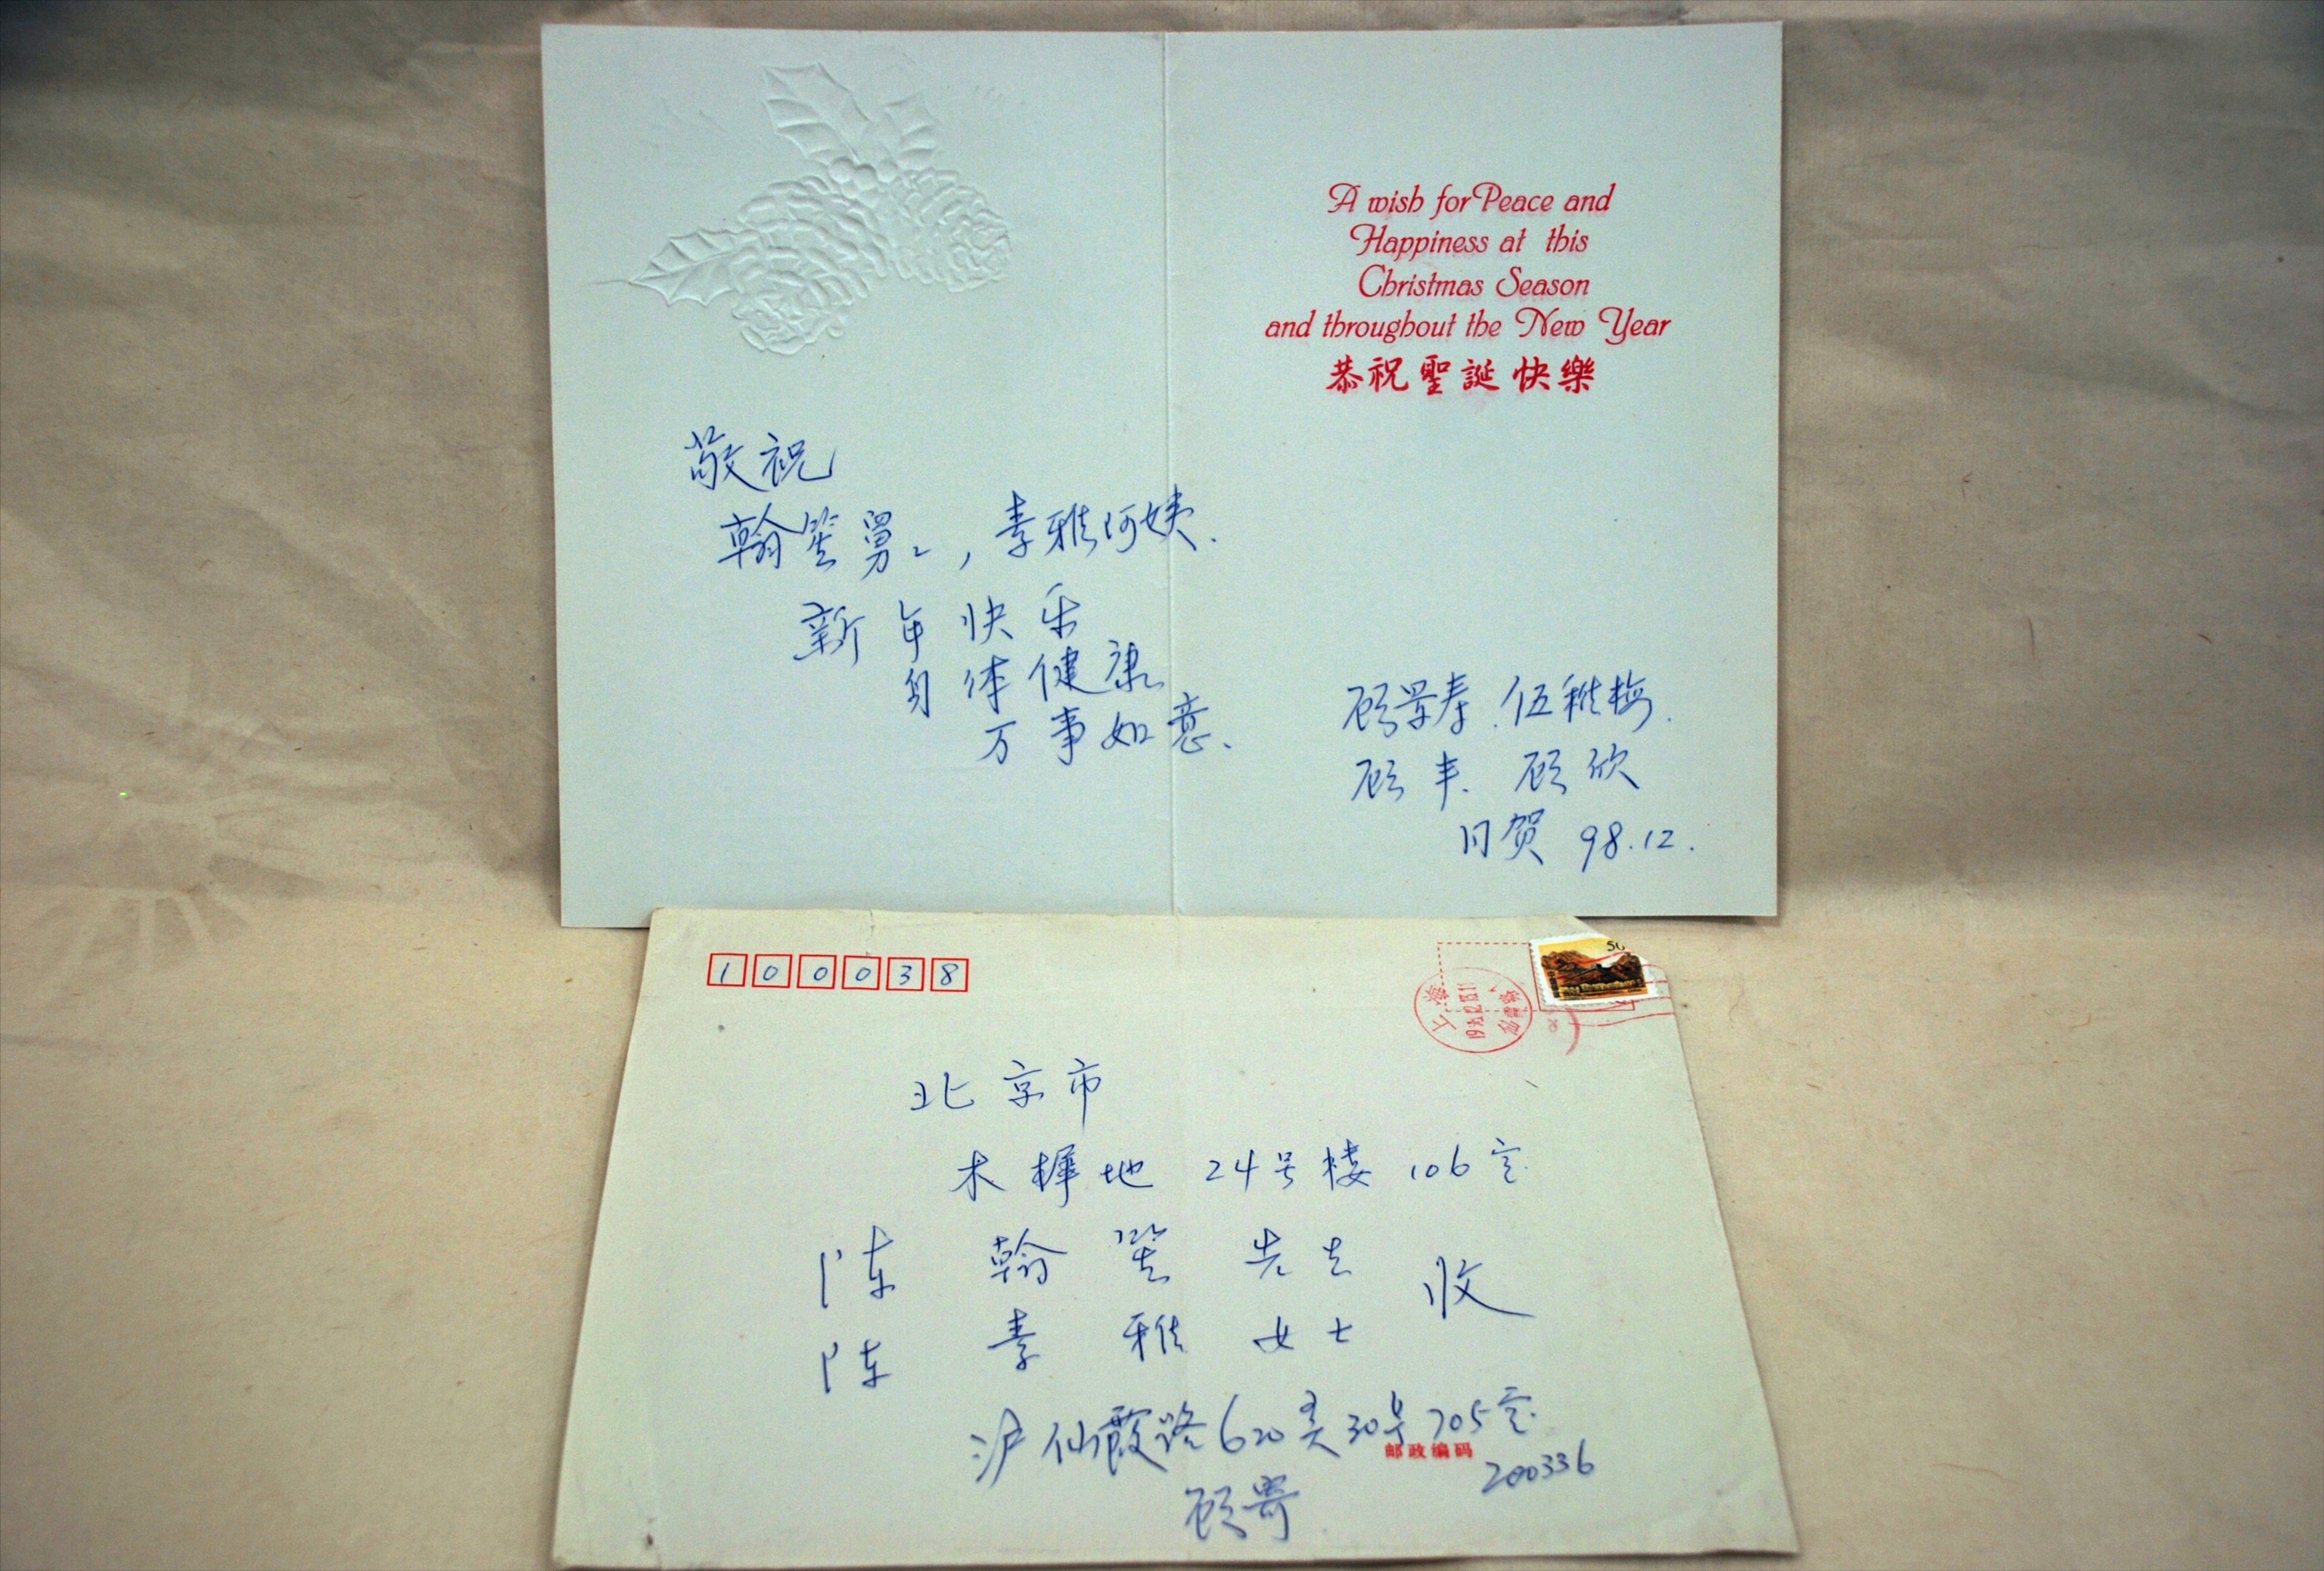 A wish for Peace and
Happiness at this
Christmas Season
and throughout the New Year
恭祝聖誕快樂
敬祝
翰笙舅々,素雅阿姨.
新年快乐
身体健康
万事如意、
顾景春、伍稚梅、
顾丰、顾欣
同贺 98.12.
100038
50
上海
北京市
木樨地 24号楼 106室
陈翰笙先生 收
陈素雅女士
沪仙霞路620弄30号705室
邮政编码 200336
顾寄